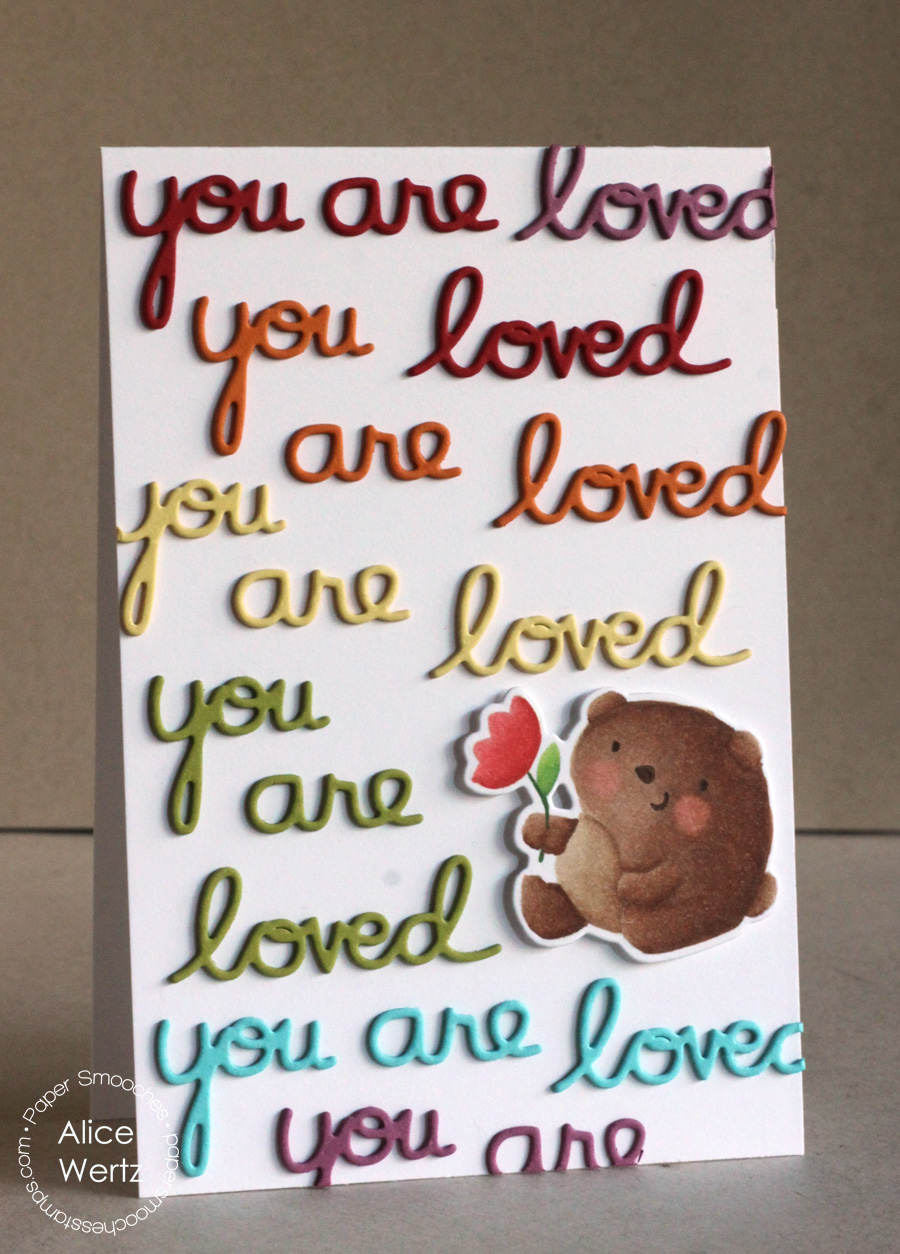 you are loved
you loved
are loved
you
are loved
you
are
loved
you are loved
you are
Paper Smooches • papersmoochesstamps.com •
Alice
Wertz